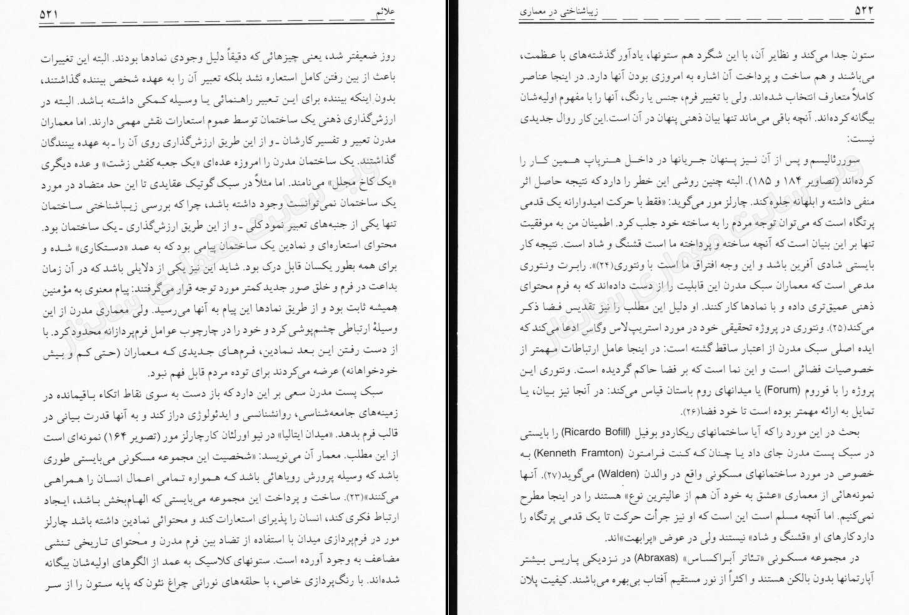 علائم ۵۲۱
روز ضعیفتر شد، یعنی چیزهائی که دقیقاً دلیل وجودی نمادها بودند. البته این تغییرات
باعث از بین رفتن کامل استعاره نشد بلکه تعبیر آن را به عهده شخص بیننده گذاشتند،
بدون اینکه بیننده برای این تعبیر راهنمائی یا وسیله کمکی داشته باشد. البته در
ارزش‌گذاری ذهنی یک ساختمان توسط عموم استعارات نقش مهمی دارند. اما معماران
مدرن تعبیر و تفسیر کارشان ـ و از این طریق ارزش‌گذاری روی آن را ـ به عهده بینندگان
گذاشتند. یک ساختمان مدرن را امروزه عده‌ای «یک جعبه کفش زشت» و عده دیگری
«یک کاخ مجلل» می‌نامند. اما مثلاً در سبک گوتیک عقایدی تا این حد متضاد در مورد
یک ساختمان نمی‌توانست وجود داشته باشد، چرا که بررسی زیباشناختی ساختمان
تنها یکی از جنبه‌های تعبیر نمود کلی ـ و از این طریق ارزش‌گذاری ـ یک ساختمان بود.
محتوای استعاره‌ای و نمادین یک ساختمان پیامی بود که به عمد «دستکاری» شده و
برای همه بطور یکسان قابل درک بود. شاید این نیز یکی از دلایلی باشد که در آن زمان
بداعت در فرم و خلق صور جدید کمتر مورد توجه قرار می‌گرفتند: پیام معنوی به مؤمنین
همیشه ثابت بود و از طریق نمادها این پیام به آنها می‌رسید. ولی معماری مدرن از این
وسیلهٔ ارتباطی چشم‌پوشی کرد و خود را در چارچوب عوامل فرم‌پردازانه محدود کرد. با
از دست رفتن این بعد نمادین، فرم‌های جدیدی که معماران (حتی کم و بیش
خودخواهانه) عرضه می‌کردند برای توده مردم قابل فهم نبود.
سبک پست مدرن سعی بر این دارد که باز دست به سوی نقاط اتکاء باقیمانده در
زمینه‌های جامعه‌شناسی، روانشناسی و ایدئولوژی دراز کند و به آنها قدرت بیانی در
قالب فرم بدهد. «میدان ایتالیا» در نیو اورلئان کار چارلز مور (تصویر ۱۶۴) نمونه‌ای است
از این مطلب. معمار آن می‌نویسد: «شخصیت این مجموعه مسکونی می‌بایستی طوری
باشد که وسیله پرورش رویاهائی باشد که همواره تمامی اعمال انسان را همراهی
می‌کنند»(۲۳). ساخت و پرداخت این مجموعه می‌بایستی که الهام‌بخش باشد، ایجاد
ارتباط فکری کند، انسان را پذیرای استعارات کند و محتوائی نمادین داشته باشد چارلز
مور در فرم‌پردازی میدان با استفاده از تضاد بین فرم مدرن و محتوای تاریخی تنشی
مضاعف به وجود آورده است. ستونهای کلاسیک به عمد از الگوهای اولیه‌شان بیگانه
شده‌اند. با رنگ‌پردازی خاص، با حلقه‌های نورانی چراغ نئون که پایه ستون را از سر
۵۲۲ زیباشناختی در معماری
ستون جدا می‌کند و نظایر آن، با این شگرد هم ستونها، یادآور گذشته‌های با عظمت،
می‌باشند و هم ساخت و پرداخت آن اشاره به امروزی بودن آنها دارد. در اینجا عناصر
کاملاً متعارف انتخاب شده‌اند. ولی با تغییر فرم، جنس یا رنگ، آنها را با مفهوم اولیه‌شان
بیگانه کرده‌اند. آنچه باقی می‌ماند تنها بیان ذهنی پنهان در آن است. این کار روال جدیدی
نیست:
سوررئالیسم و پس از آن نیز پنهان جریانها در داخل هنر پاپ همین کار را
کرده‌اند (تصاویر ۱۸۴ و ۱۸۵). البته چنین روشی این خطر را دارد که نتیجه حاصل اثر
منفی داشته و ابلهانه جلوه کند. چارلز مور می‌گوید: «فقط با حرکت امیدوارانه یک قدمی
پرتگاه است که می‌توان توجه مردم را به ساخته خود جلب کرد. اطمینان من به موفقیت
تنها بر این بنیان است که آنچه ساخته و پرداخته ما است قشنگ و شاد است. نتیجه کار
بایستی شادی آفرین باشد و این وجه افتراق ما است با ونتوری(۲۴)». رابرت ونتوری
مدعی است که معماران سبک مدرن این قابلیت را از دست داده‌اند که به فرم محتوای
ذهنی عمیق‌تری داده و با نمادها کار کنند. او دلیل این مطلب را نیز تقدیس فضا ذکر
می‌کند(۲۵). ونتوری در پروژه تحقیقی خود در مورد استریپ لاس وگاس ادعا می‌کند که
ایده اصلی سبک مدرن از اعتبار ساقط گشته است: در اینجا عامل ارتباطات مهمتر از
خصوصیات فضائی است و این نما است که بر فضا حاکم گردیده است. ونتوری این
پروژه را با فوروم (Forum) یا میدانهای روم باستان قیاس می‌کند: در آنجا نیز بیان، یا
تمایل به ارائه مهمتر بوده است تا خود فضا(۲۶).
بحث در این مورد را که آیا ساختمانهای ریکاردو بوفیل (Ricardo Bofill) را بایستی
در سبک پست مدرن جای داد یا چنان که کنت فرامتون (Kenneth Framton) به
خصوص در مورد ساختمانهای مسکونی واقع در والدن (Walden) می‌گوید(۲۷)، آنها
نمونه‌هائی از معماری «عشق به خود آن هم از عالیترین نوع» هستند را در اینجا مطرح
نمی‌کنیم. اما آنچه مسلم است این است که او نیز جرأت حرکت تا یک قدمی پرتگاه را
دارد کارهای او «قشنگ و شاد» نیستند ولی در عوض «پرابهت»اند.
در مجموعه مسکونی «تئاتر آبراکساس» (Abraxas) در نزدیکی پاریس بیشتر
آپارتمانها بدون بالکن هستند و اکثراً از نور مستقیم آفتاب بی‌بهره می‌باشند. کیفیت پلان